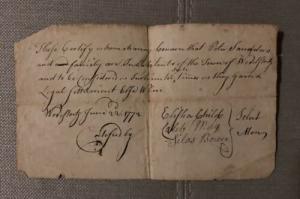 These Certify whom it may Concern that Peter Saunders
and Family are Inhabitants of the Town of Woodstock
and to be Considered as Such untill Such time as they gain a
Legal Settlement Else Where
Woodstock June 22 1772
Elisha Child
Silas Bowen
Select
Men